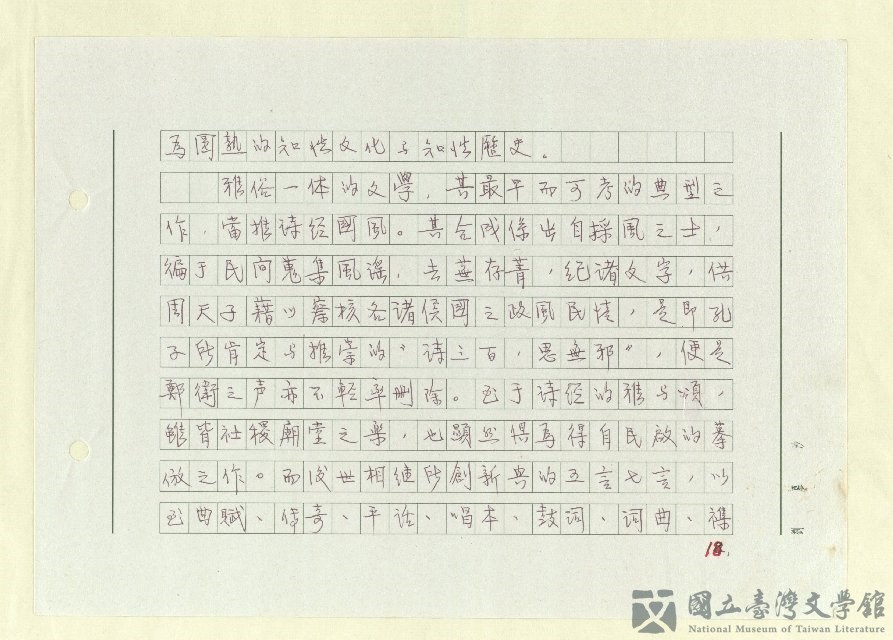 為圓熟的知性文化与知性歷史。
雅俗一体的文學，其最早而可考的典型之
作，當推诗经國風。其合成係出自採風之士，
徧于民间蒐集風謠，去蕪存菁，纪诸文字，供
周天子藉以察核各諸侯國之政風民情，是即孔
子所肯定与推崇的“诗三百，思無邪”，便是
鄭衛之声亦不輕率刪除。至于诗经的雅与頌，
雖皆社稷廟堂之樂，也顯然得自民啟的摹
倣之作。而後世相继所創新典的五言七言，以
至曲賦、传奇、平话、唱本、鼓词、词曲、雜
18
國立臺灣文學館
National Museum of Taiwan Literature